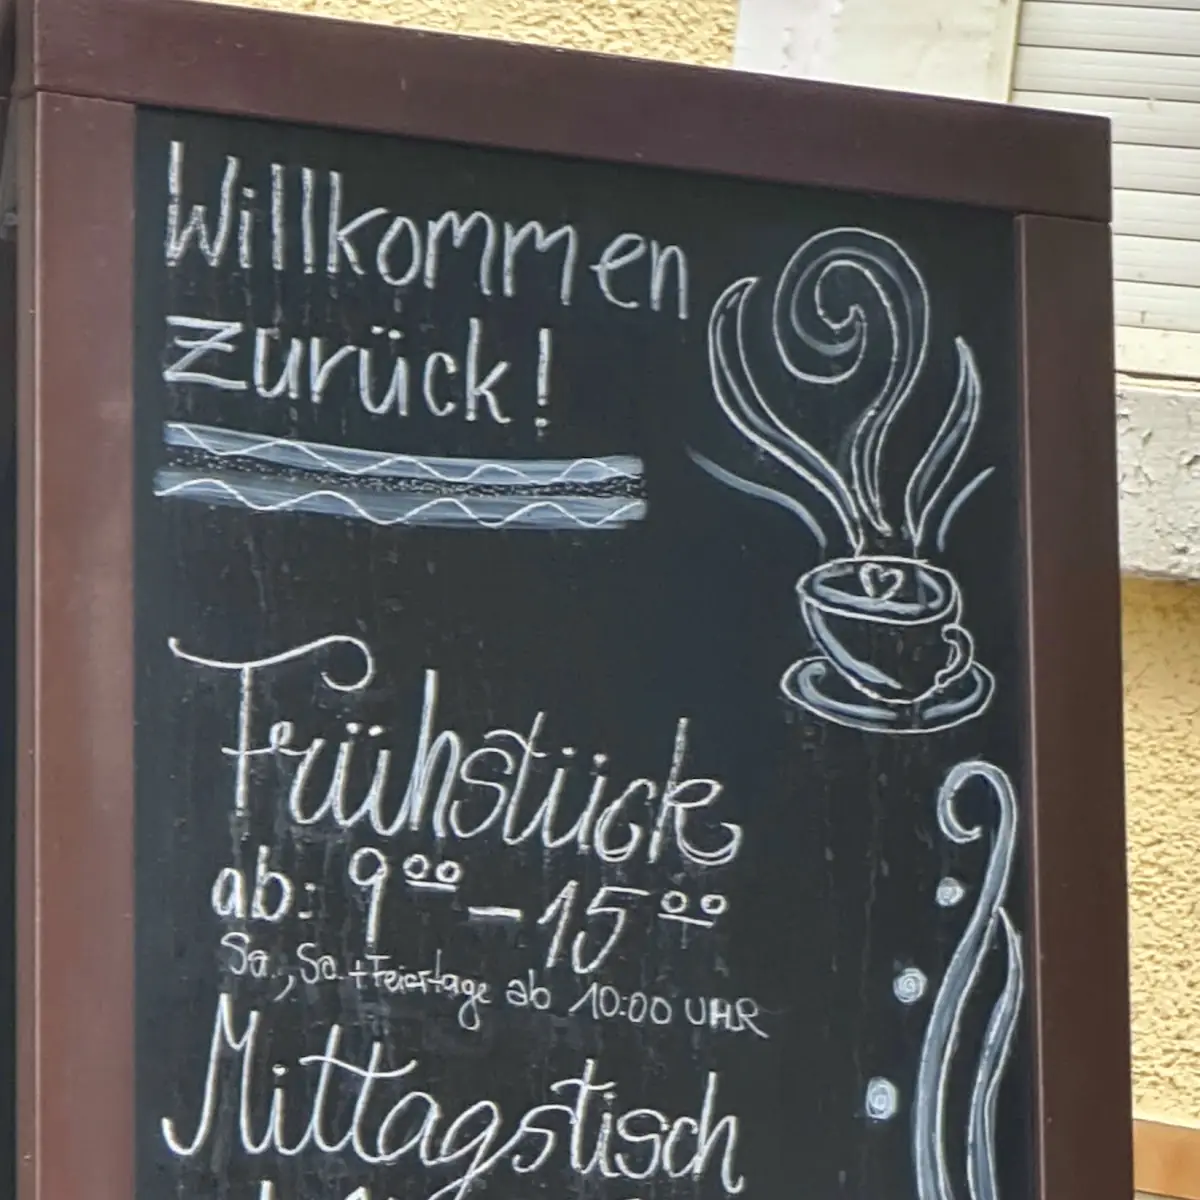 Willkommen
zurück!
Frühstück
ab: 9⁰⁰ – 15⁰⁰
Sa., So. + Feiertage ab 10:00 UHR
Mittagstisch